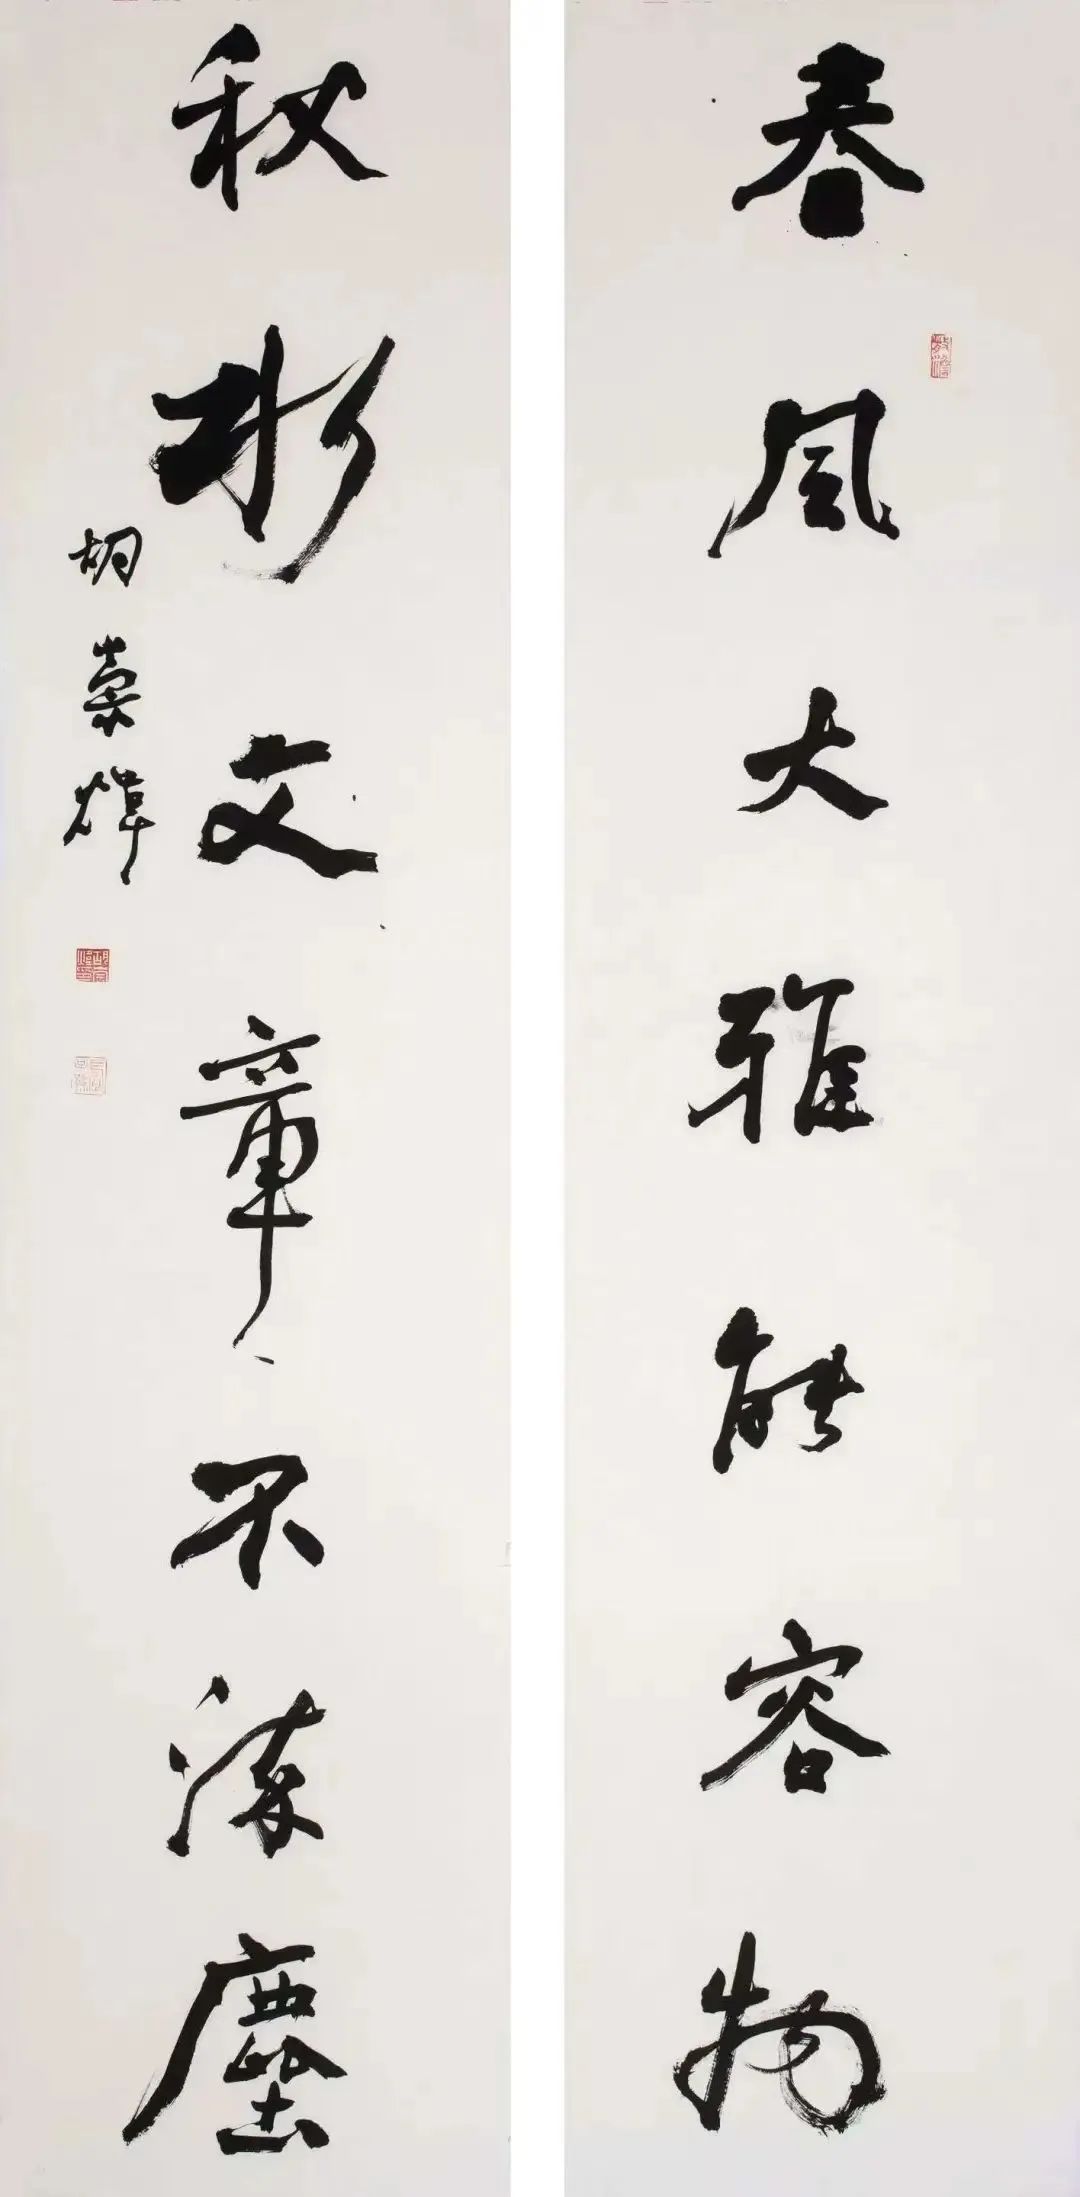 春風大雅能容物
秋水文章不染塵
胡崇煒